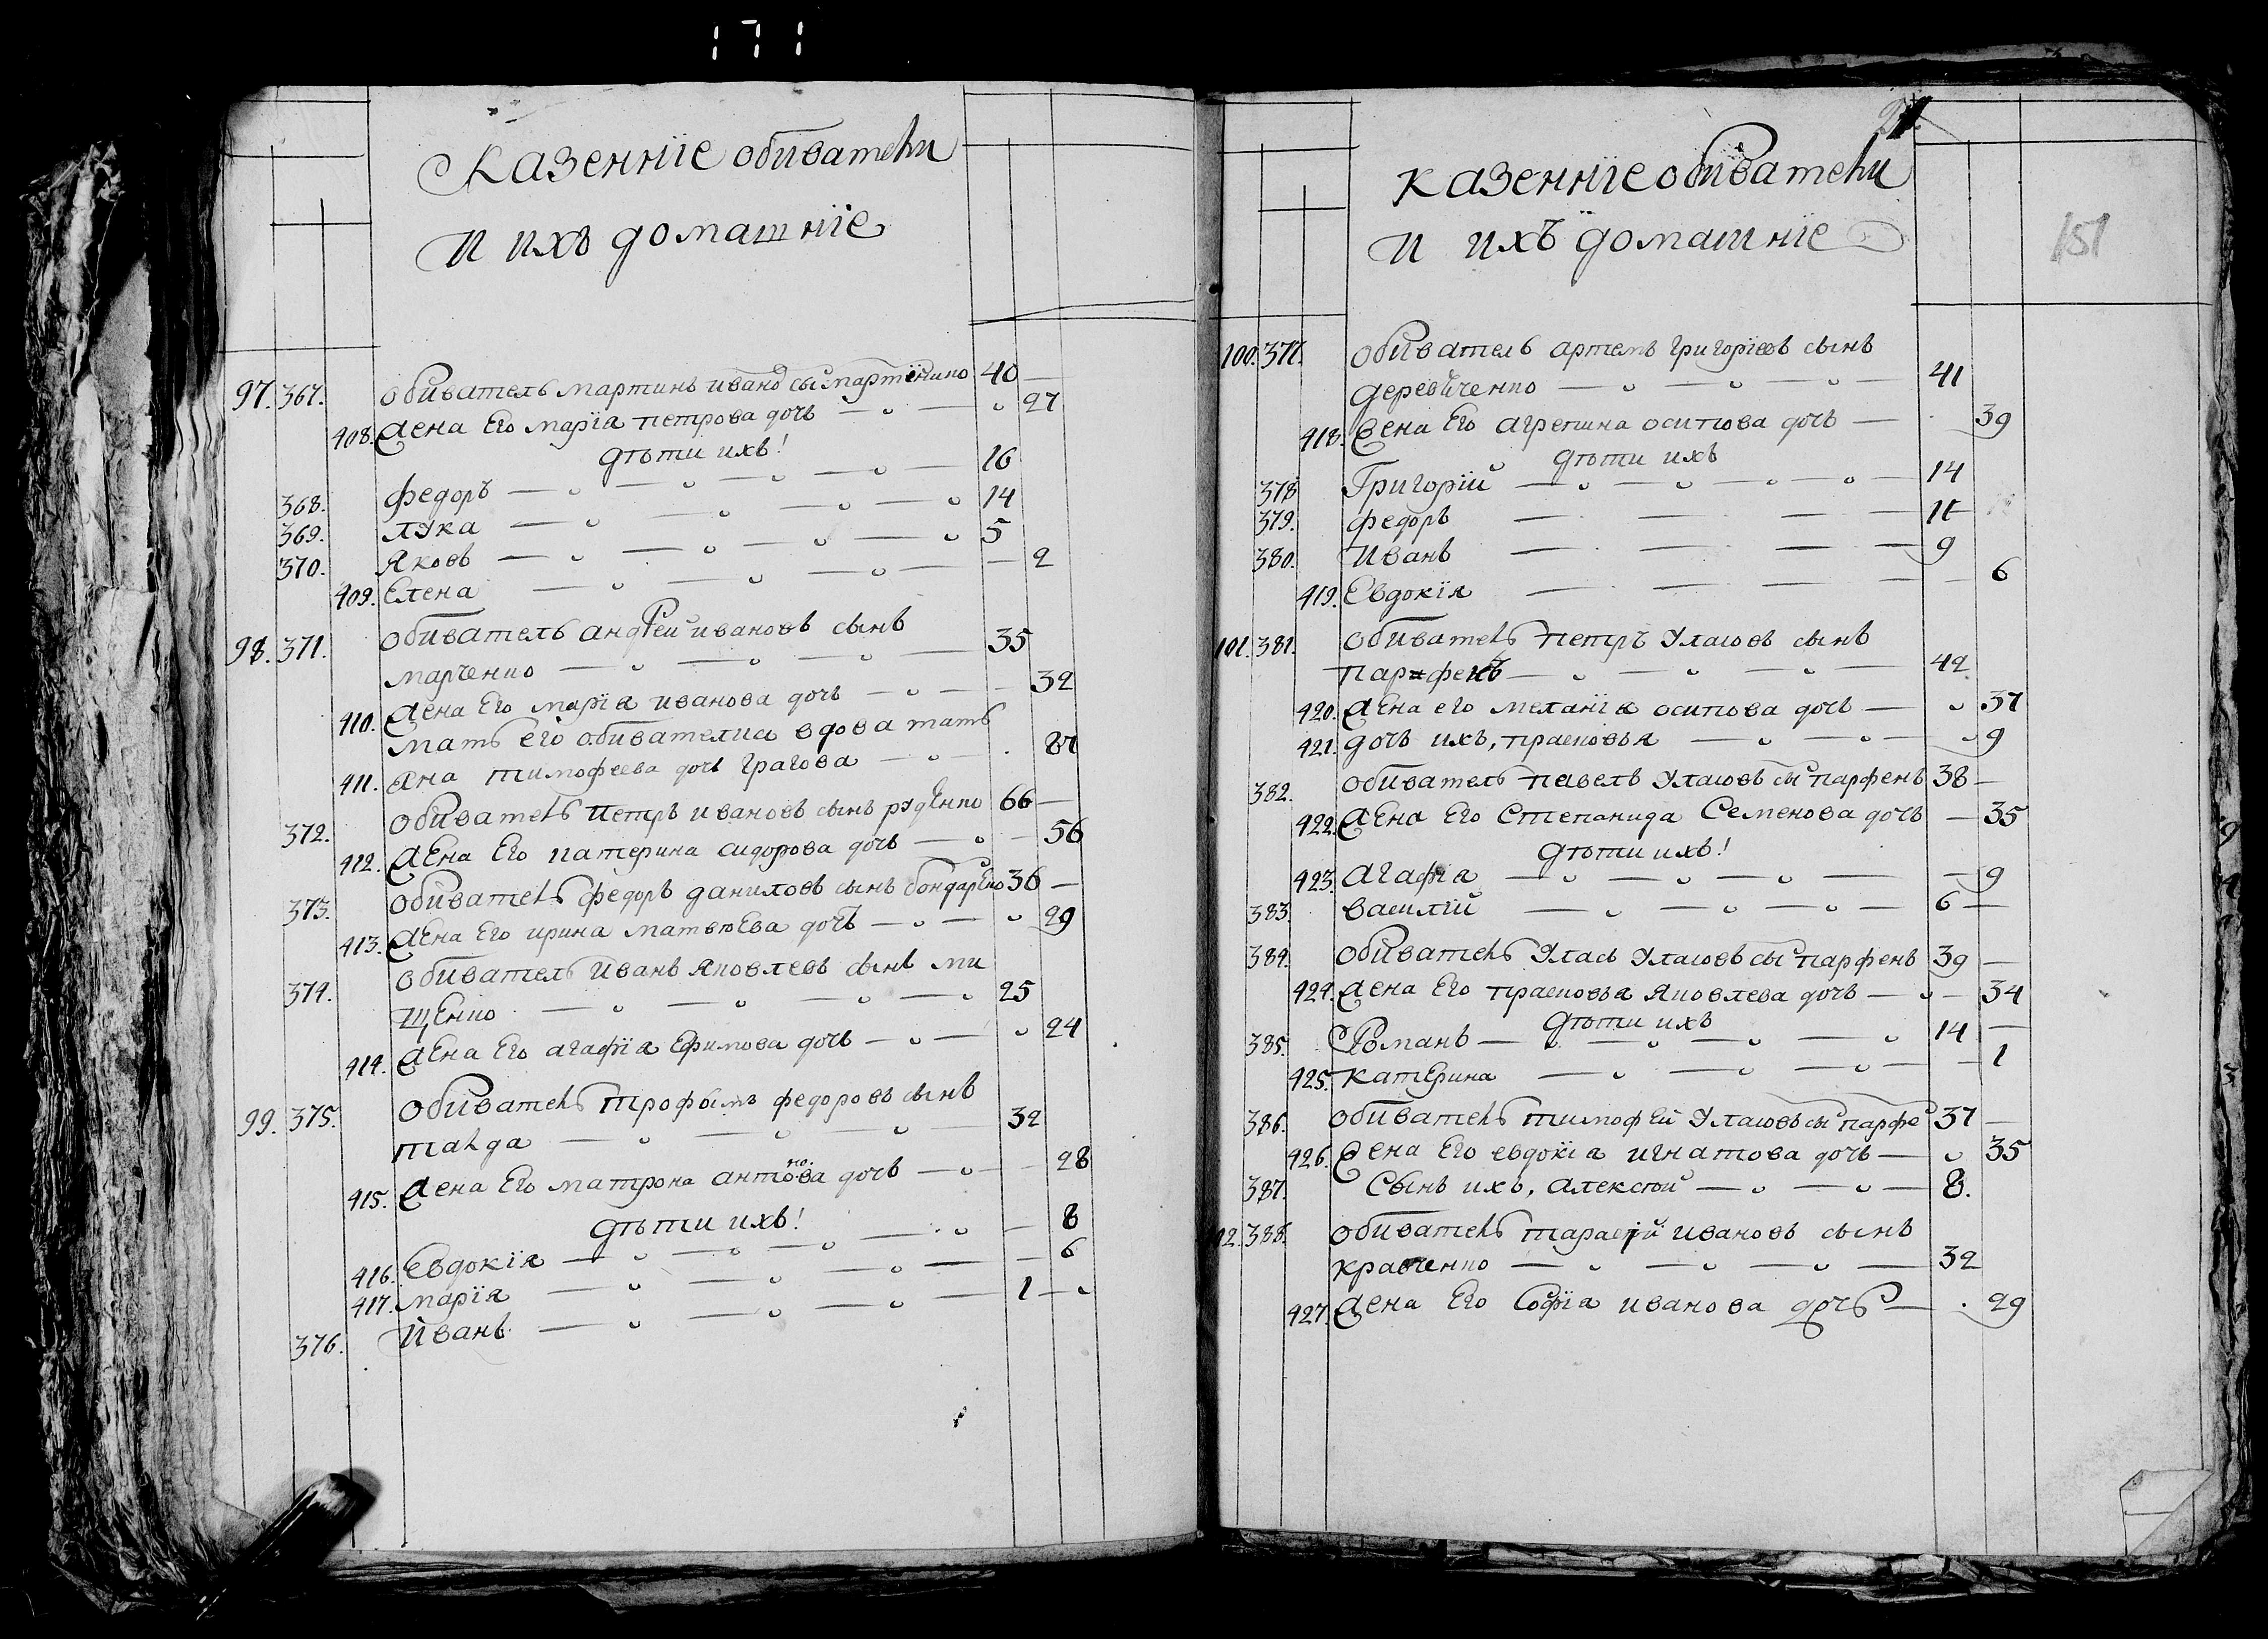 171
Казенніе обиватели
И ихъ домашніе
97. 367. обиватель мартинъ ивано сы мартїенко 40 —
408. Жена Его марїа петрова дочь 27
дѣти ихъ!
368. федоръ 16
369. лука 14
370. яковъ 5
409. Елена — 2
98. 371. обиватель андрей ивановъ сынъ
марченко 35
410. Жена Его марїа иванова дочь 32
мать его обивателка вдова тать
411. яна тимофеева дочь
372. обиватель петръ ивановъ сынъ руденко 66 —
412. Жена Его катерина сидорова дочь 56
373. обиватель федоръ даниловъ сынъ бондаренко 36 —
413. Жена Его ирина матвюева дочъ 29
374. обиватель иванъ яковлевъ сынъ ми
щенко 25
414. Жена Его агафїа ефимова дочь 24
99. 375. обиватель трофымъ федоровъ сынъ
талда 32
415. Жена Его матрона антонова дочь 28
дѣти ихъ!
416. Евдокїя 8
417. марїя 6
376. Иванъ 1 —
151
казенніе обиватели
и ихъ домашніе
100. 377. обиватель артемъ григорїевъ сынъ
деревяченко 41
418. Жена Его агрепина осипова дочь 39
дѣти ихъ
378 Григорїй 14
379. федоръ 11
380. Иванъ 9
419. Евдокїя 6
101. 381. обиватель петръ Уласовъ сынъ
парфенъ 42
420. Жена его меланїя осипова дочь 37
421. дочь ихъ, прасковья 9
382. обиватель павелъ Уласовъ сы парфенъ 38 —
422. Жена Его Степанида Семенова дочь — 35
дѣти ихъ!
423. агафїа — 9
383. василїй 6 —
384. обиватель Уласъ Уласовъ сы парфенъ 39 —
424. Жена Его прасковья яковлева дочь 34
дѣти ихъ
385. Романъ 14 —
425. катерина — 1
386. обиватель тимофей Уласовъ сы парфе 37 —
426. Жена Его евдокїа игнатова дочь — 35
387. Сынъ ихъ, алексѣй 8.
388. обиватель тарасїй ивановъ сынъ
кравченко 32
427. Жена Его Софїа иванова дочь 29